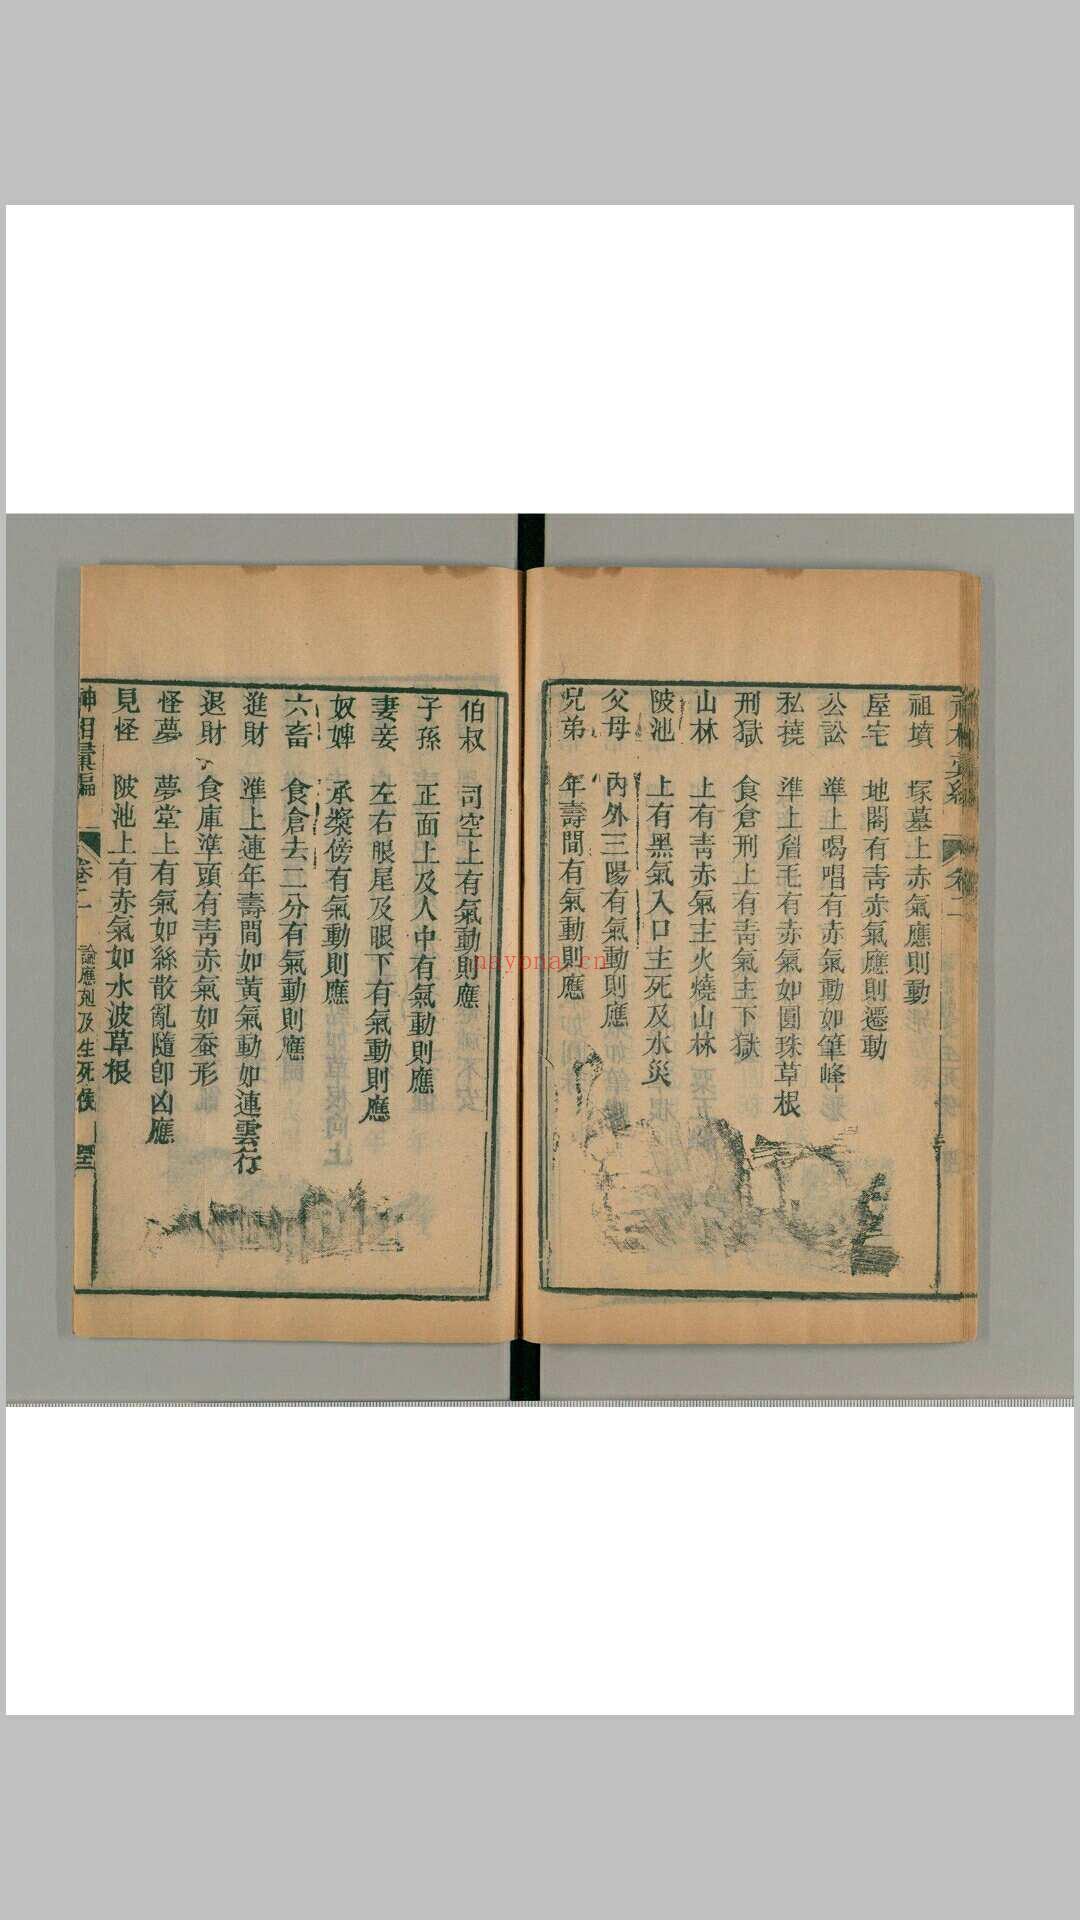 祖墳 塚墓上赤氣應則動
屋宅 地閣有青赤氣應則遷動
公訟 準上喝唱有赤氣動如筆峰
私撓 準上眉毛有赤氣如圓珠草根
刑獄 食倉刑上有靑氣主下獄
山林 上有靑赤氣主火燒山林
陂池 上有黑氣入口主死及水災
父母 內外三陽有氣動則應
兄弟 年壽間有氣動則應
伯叔 司空上有氣動則應
子孫 正面上及人中有氣動則應
妻妾 左右眼尾及眼下有氣動則應
奴婢 承漿傍有氣動則應
六畜 食倉去二分有氣動則應
進財 準上連年壽間如黃氣動如連雲行
退財 食庫準頭有靑赤氣如蚕形
怪夢 夢堂上有氣如絲散亂隨卽凶應
見怪 陂池上有赤氣如水波草根
神相彙編 卷十二 論應剋及生死候
nayona.cn